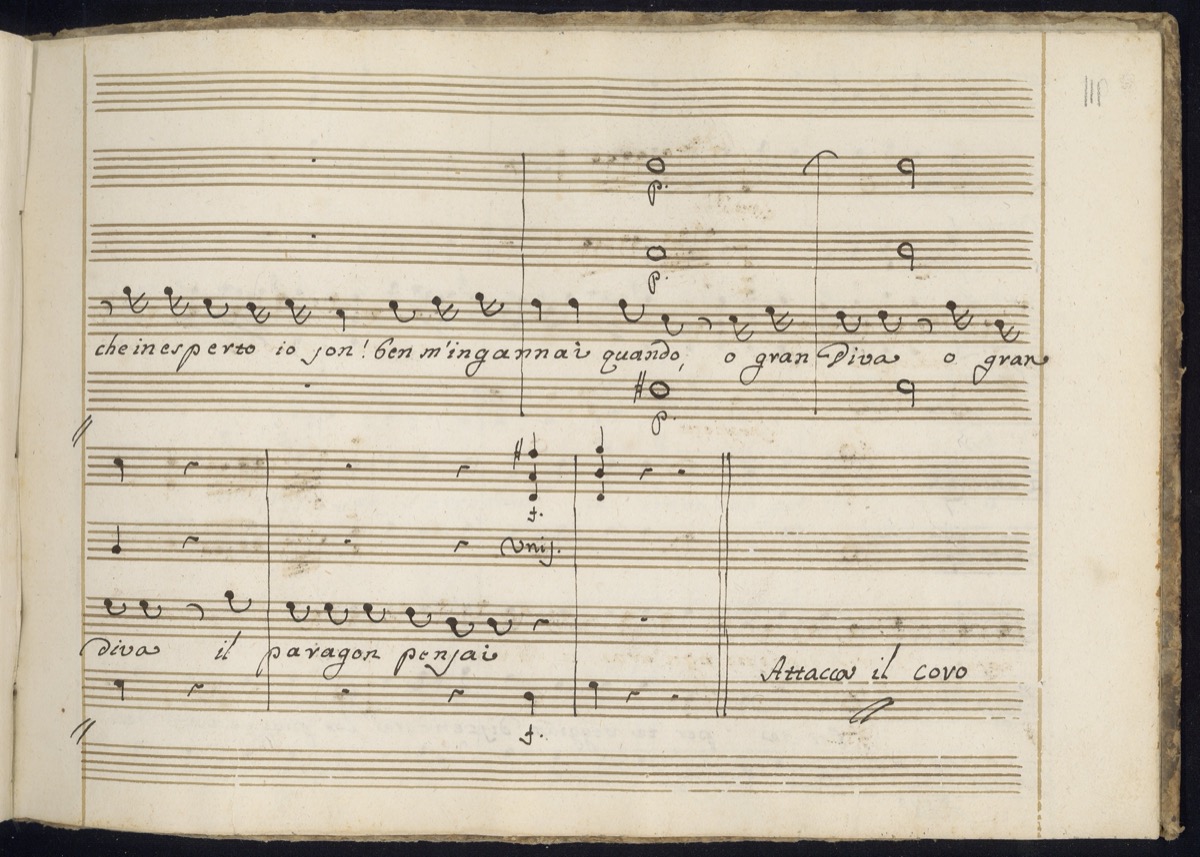 111
p.
p.
che inesperto io son! ben m'ingannai quando, o gran Diva o gran
p.
f.
Unis.
Diva il paragon pensai
Attacca il Coro
f.